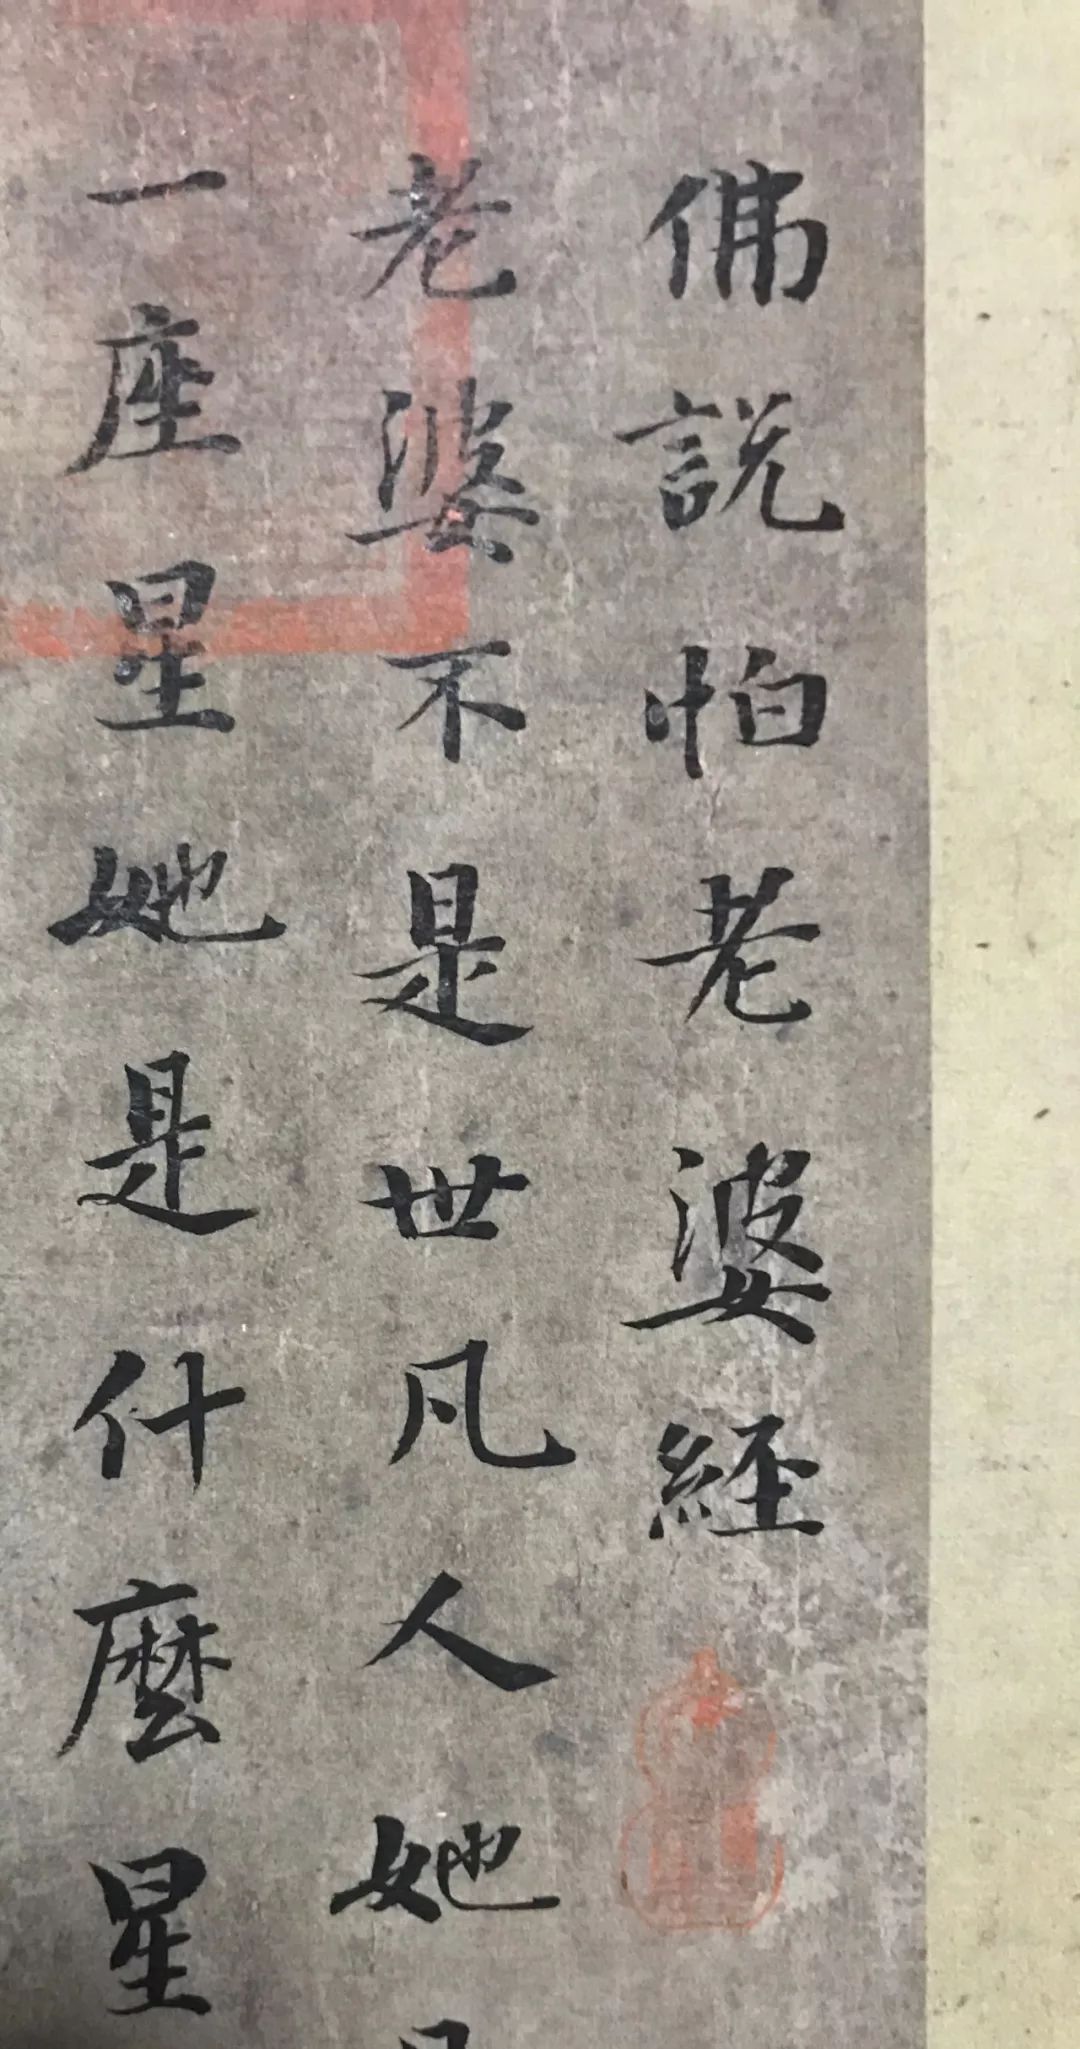 佛説怕老婆經
老婆不是世凡人她是
一座星她是什麽星